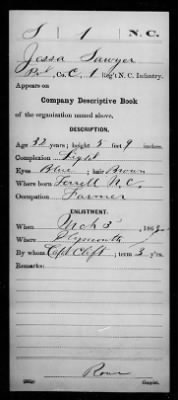 S 1 N.C.
Jessa Sawyer
Co. C, 1 Reg't N. C. Infantry.
Appears on
Company Descriptive Book
of the organization named above.
DESCRIPTION.
Age 32 years; height 5 feet 9 inches.
Complexion Light
Eyes Blue; hair Brown
Where born N.C.
Occupation Farmer
ENLISTMENT.
When Mch 3, 186
Where Plymouth
By whom Capt Clift; term 3 y'rs.
Remarks:
Copyist.